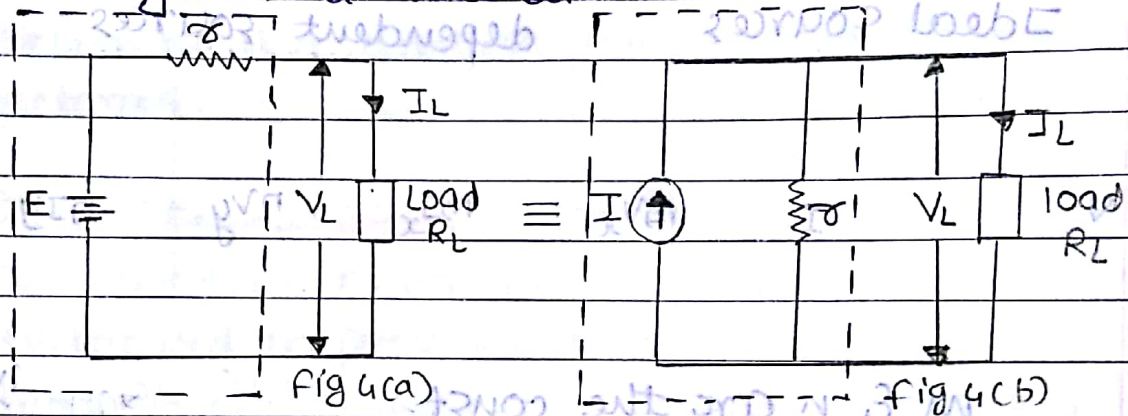 r
I_L
E
V_L
Load
R_L
≡
I
r
V_L
I_L
load
R_L
fig 4(a)
fig 4(b)